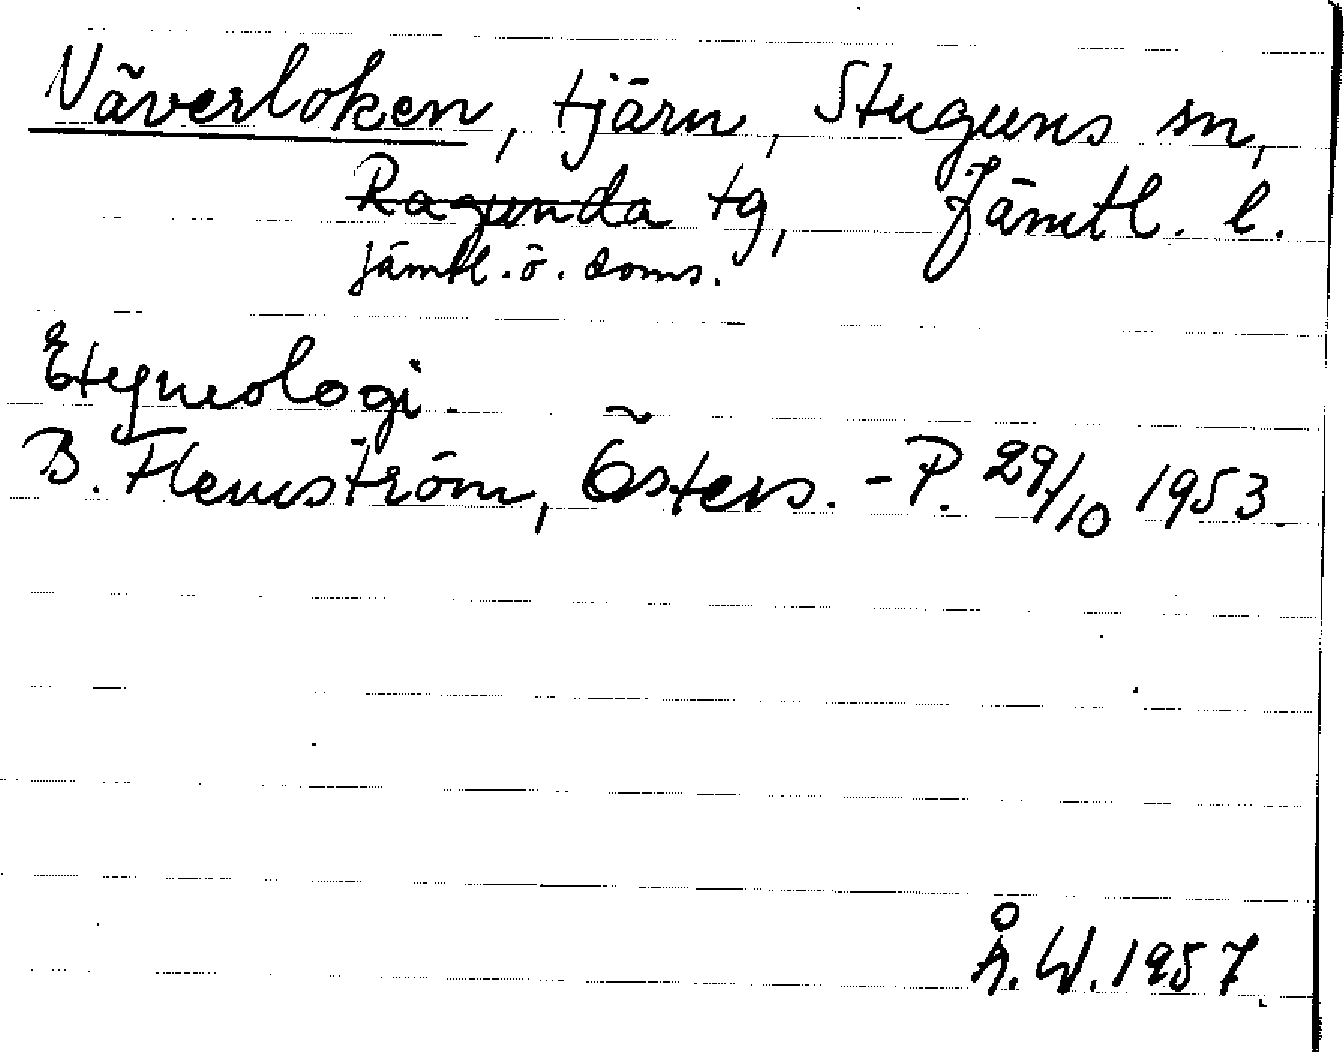 Näverloken, tjärn, Stuguns sn,
Ragunda tg, Jämtl. l.
Jämtl. ö. doms.
Etymologi.
B. Flemström, Östers. - P. 29/10 1953.
Å. W. 1957.